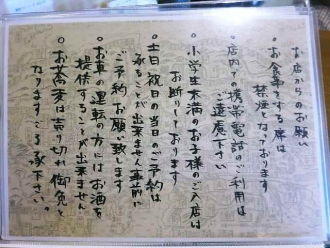 お店からのお願い
。お食事をする席は
禁煙となっております
。店内での携帯電話のご利用は
ご遠慮下さい
。小学生未満のお子様のご入店は
お断りしております
。土日祝日の当日のご予約は
承ることが出来ません事前に
ご予約お願い致します
。お車の運転の方にはお酒を
提供することが出来ません
。お蕎麦は売り切れ御免と
なりますご了承下さい。